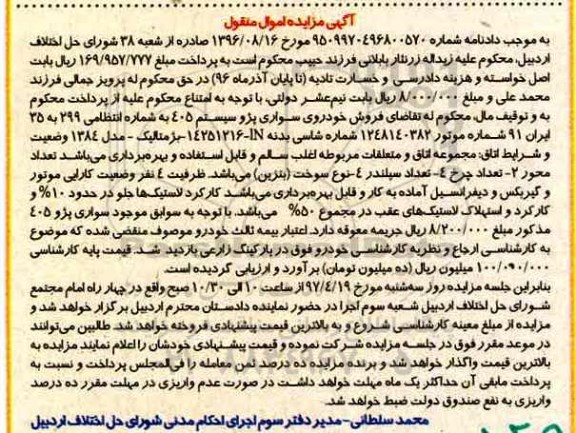 آگهی مزایده اموال منقول
به موجب دادنامه شماره 9509970496800570 مورخ 1396/08/16 صادره از شعبه 38 شورای حل اختلاف
اردبیل، محکوم علیه زیداله زرنثار بابلانی فرزند حبیب محکوم است به پرداخت مبلغ 169/957/777 ریال بابت
اصل خواسته و هزینه دادرسی و خسارت تادیه (تا پایان آذرماه 96) در حق محکوم له پرویز جمالی فرزند
محمد علی و مبلغ 8/000/000 ریال بابت نیم‌عشر دولتی، با توجه به امتناع محکوم علیه از پرداخت محکوم
به و توقیف مال، محکوم له تقاضای فروش خودروی سواری پژو سیستم 405 به شماره انتظامی 299 به 35
ایران 91 شماره موتور 12481140382 شماره شاسی بدنه IN-14251216-بژ متالیک - مدل 1384 وضعیت
و شرایط اتاق: مجموعه اتاق و متعلقات مربوطه اغلب سالم و قابل استفاده و بهره‌برداری می‌باشد تعداد
محور 2- تعداد چرخ 4- تعداد سیلندر 4-نوع سوخت (بنزین) می‌باشد. ظرفیت 4 نفر وضعیت کارایی موتور
و گیربکس و دیفرانسیل آماده به کار و قابل بهره‌برداری می‌باشد کارکرد لاستیک‌ها جلو در حدود 10% و
کارکرد و استهلاک لاستیک‌های عقب در مجموع 50% می‌باشد. با توجه به سوابق موجود سواری پژو 405
مذکور مبلغ 8/200/000 ریال جریمه معوقه دارد. اعتبار بیمه ثالث خودرو موصوف منقضی شده که موضوع
به کارشناسی ارجاع و نظریه کارشناسی خودرو فوق در پارکینگ زارعی بازدید شد. قیمت پایه کارشناسی
100/000/000 میلیون ریال (ده میلیون تومان) برآورد و ارزیابی گردیده است.
بنابراین جلسه مزایده روز سه‌شنبه مورخ 97/4/19 از ساعت 10 الی 10/30 صبح واقع در چهار راه امام مجتمع
شورای حل اختلاف اردبیل شعبه سوم اجرا در حضور نماینده دادستان محترم اردبیل برگزار خواهد شد و
مزایده از مبلغ معینه کارشناسی شروع و به بالاترین قیمت پیشنهادی فروخته خواهد شد. طالبین می‌توانند
در موعد مقرر فوق در جلسه مزایده شرکت نموده و قیمت پیشنهادی خودشان را اعلام نمایند مزایده به
بالاترین قیمت واگذار خواهد شد و برنده مزایده ده درصد ثمن معامله را فی‌المجلس پرداخت و نسبت به
پرداخت مابقی آن حداکثر یک ماه مهلت خواهد داشت در صورت عدم واریزی در مهلت مقرر ده درصد
واریزی به نفع صندوق دولت ضبط خواهد شد.
محمد سلطانی-مدیر دفتر سوم اجرای احکام مدنی شورای حل اختلاف اردبیل